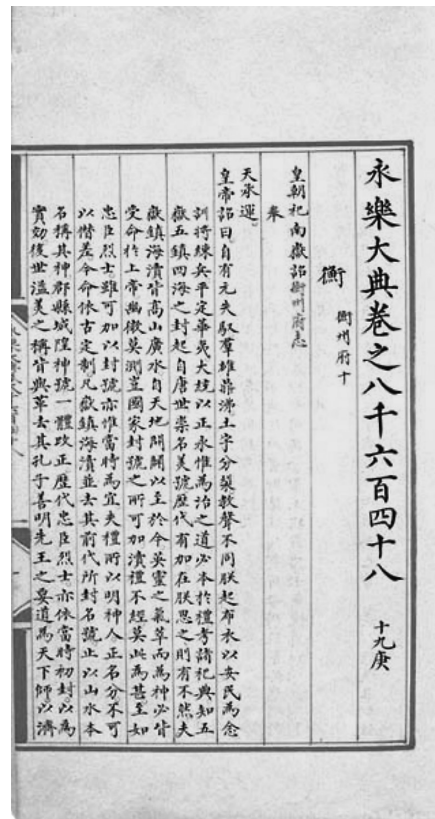 永樂大典卷之八千六百四十八 十九庚
衡 衡州府十
皇朝祀南嶽詔衡州府志
奉
天承運
皇帝詔曰自有元失馭羣雄鼎沸土宇分裂教聲不同朕起布衣以安民為念
訓將練兵平定華夷大統以正永惟為治之道必本於禮考諸祀典知五
嶽五鎮四海之封起自唐世崇名美號歷代有加在朕思之則有不然夫
嶽鎮海瀆皆高山廣水自天地開闢以至於今英靈之氣萃而為神必皆
受命於上帝幽微莫測豈國家封號之所可加瀆禮不經莫此為甚至如
忠臣烈士雖可加以封號亦惟當時為宜夫禮所以明神人正名分不可
以僭差今命依古定制凡嶽鎮海瀆並去其前代所封名號止以山水本
名稱其神郡縣城隍神號一體改正歷代忠臣烈士亦依當時初封以為
實効後世溢美之稱皆與革去其孔子善明先王之要道為天下師以濟